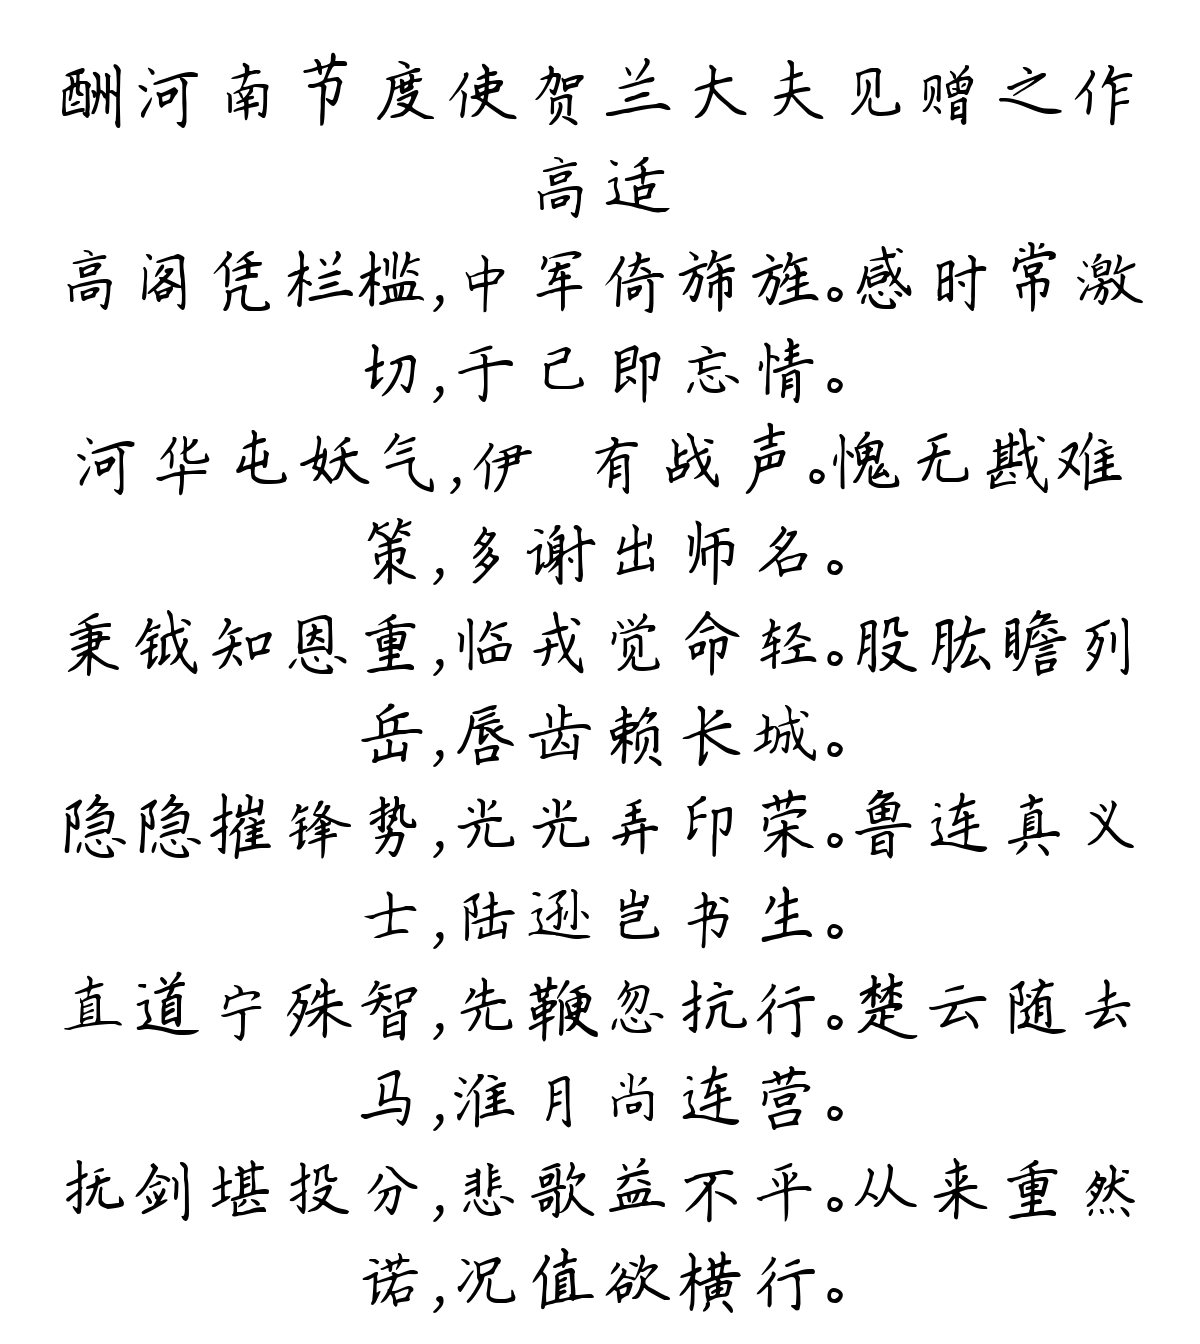 酬河南节度使贺兰大夫见赠之作
高适
高阁凭栏槛,中军倚旆旌。感时常激
切,于己即忘情。
河华屯妖气,伊 有战声。愧无戡难
策,多谢出师名。
秉钺知恩重,临戎觉命轻。股肱瞻列
岳,唇齿赖长城。
隐隐摧锋势,光光弄印荣。鲁连真义
士,陆逊岂书生。
直道宁殊智,先鞭忽抗行。楚云随去
马,淮月尚连营。
抚剑堪投分,悲歌益不平。从来重然
诺,况值欲横行。